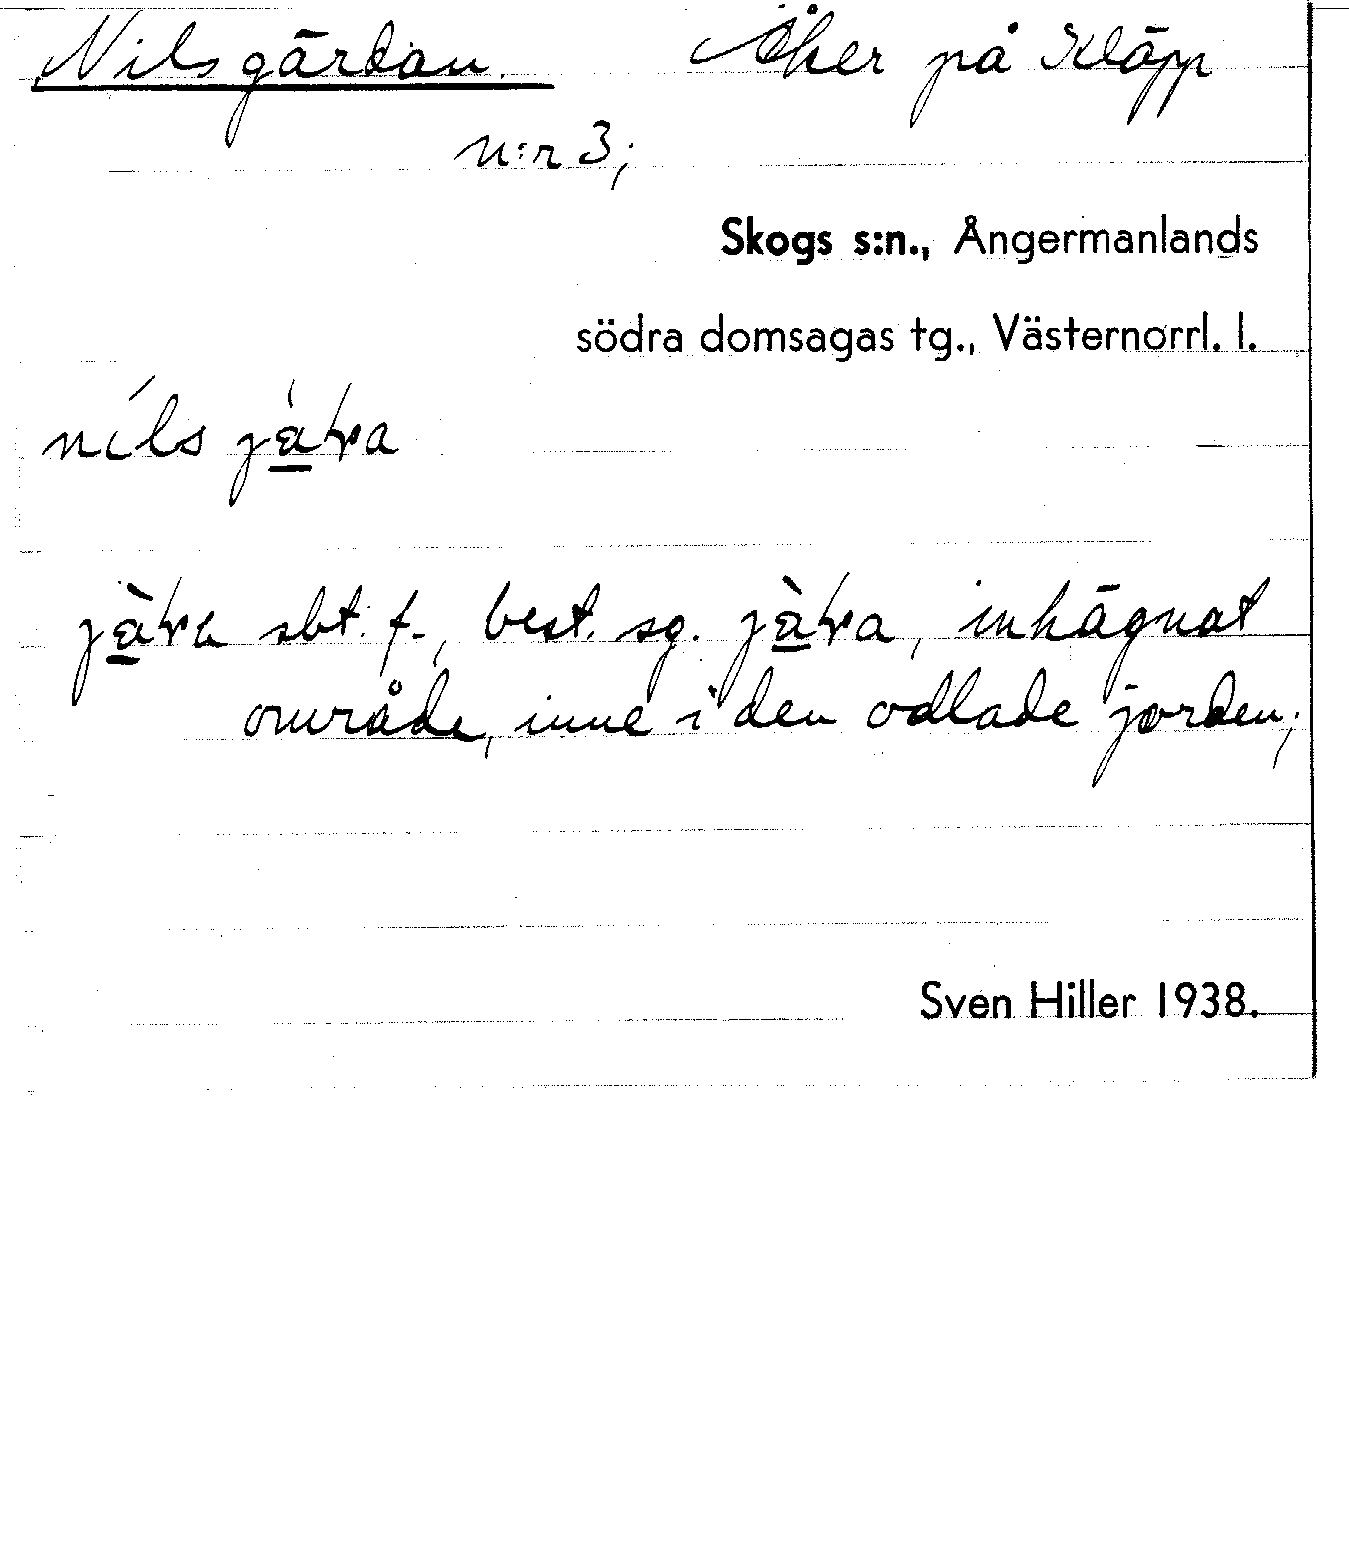 Nilsgärdan. Åker på Kläpp
n:r 3;
Skogs s:n., Ångermanlands
södra domsagas tg., Västernorrl. l.
nils
sbt. f., best. sg. inhägnat
område, inne i den odlade jorden;
Sven Hiller 1938.